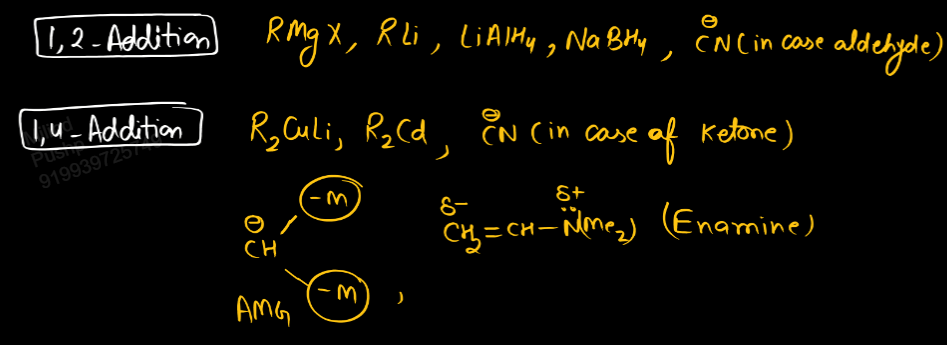 1,2-Addition RMgX, RLi, LiAlH4, NaBH4, ⊖CN (in case aldehyde)
1,4-Addition R2CuLi, R2Cd, ⊖CN (in case of Ketone)
919939725
-M δ- δ+
⊖CH CH2=CH-N̈(Me2) (Enamine)
-M ,
AMG